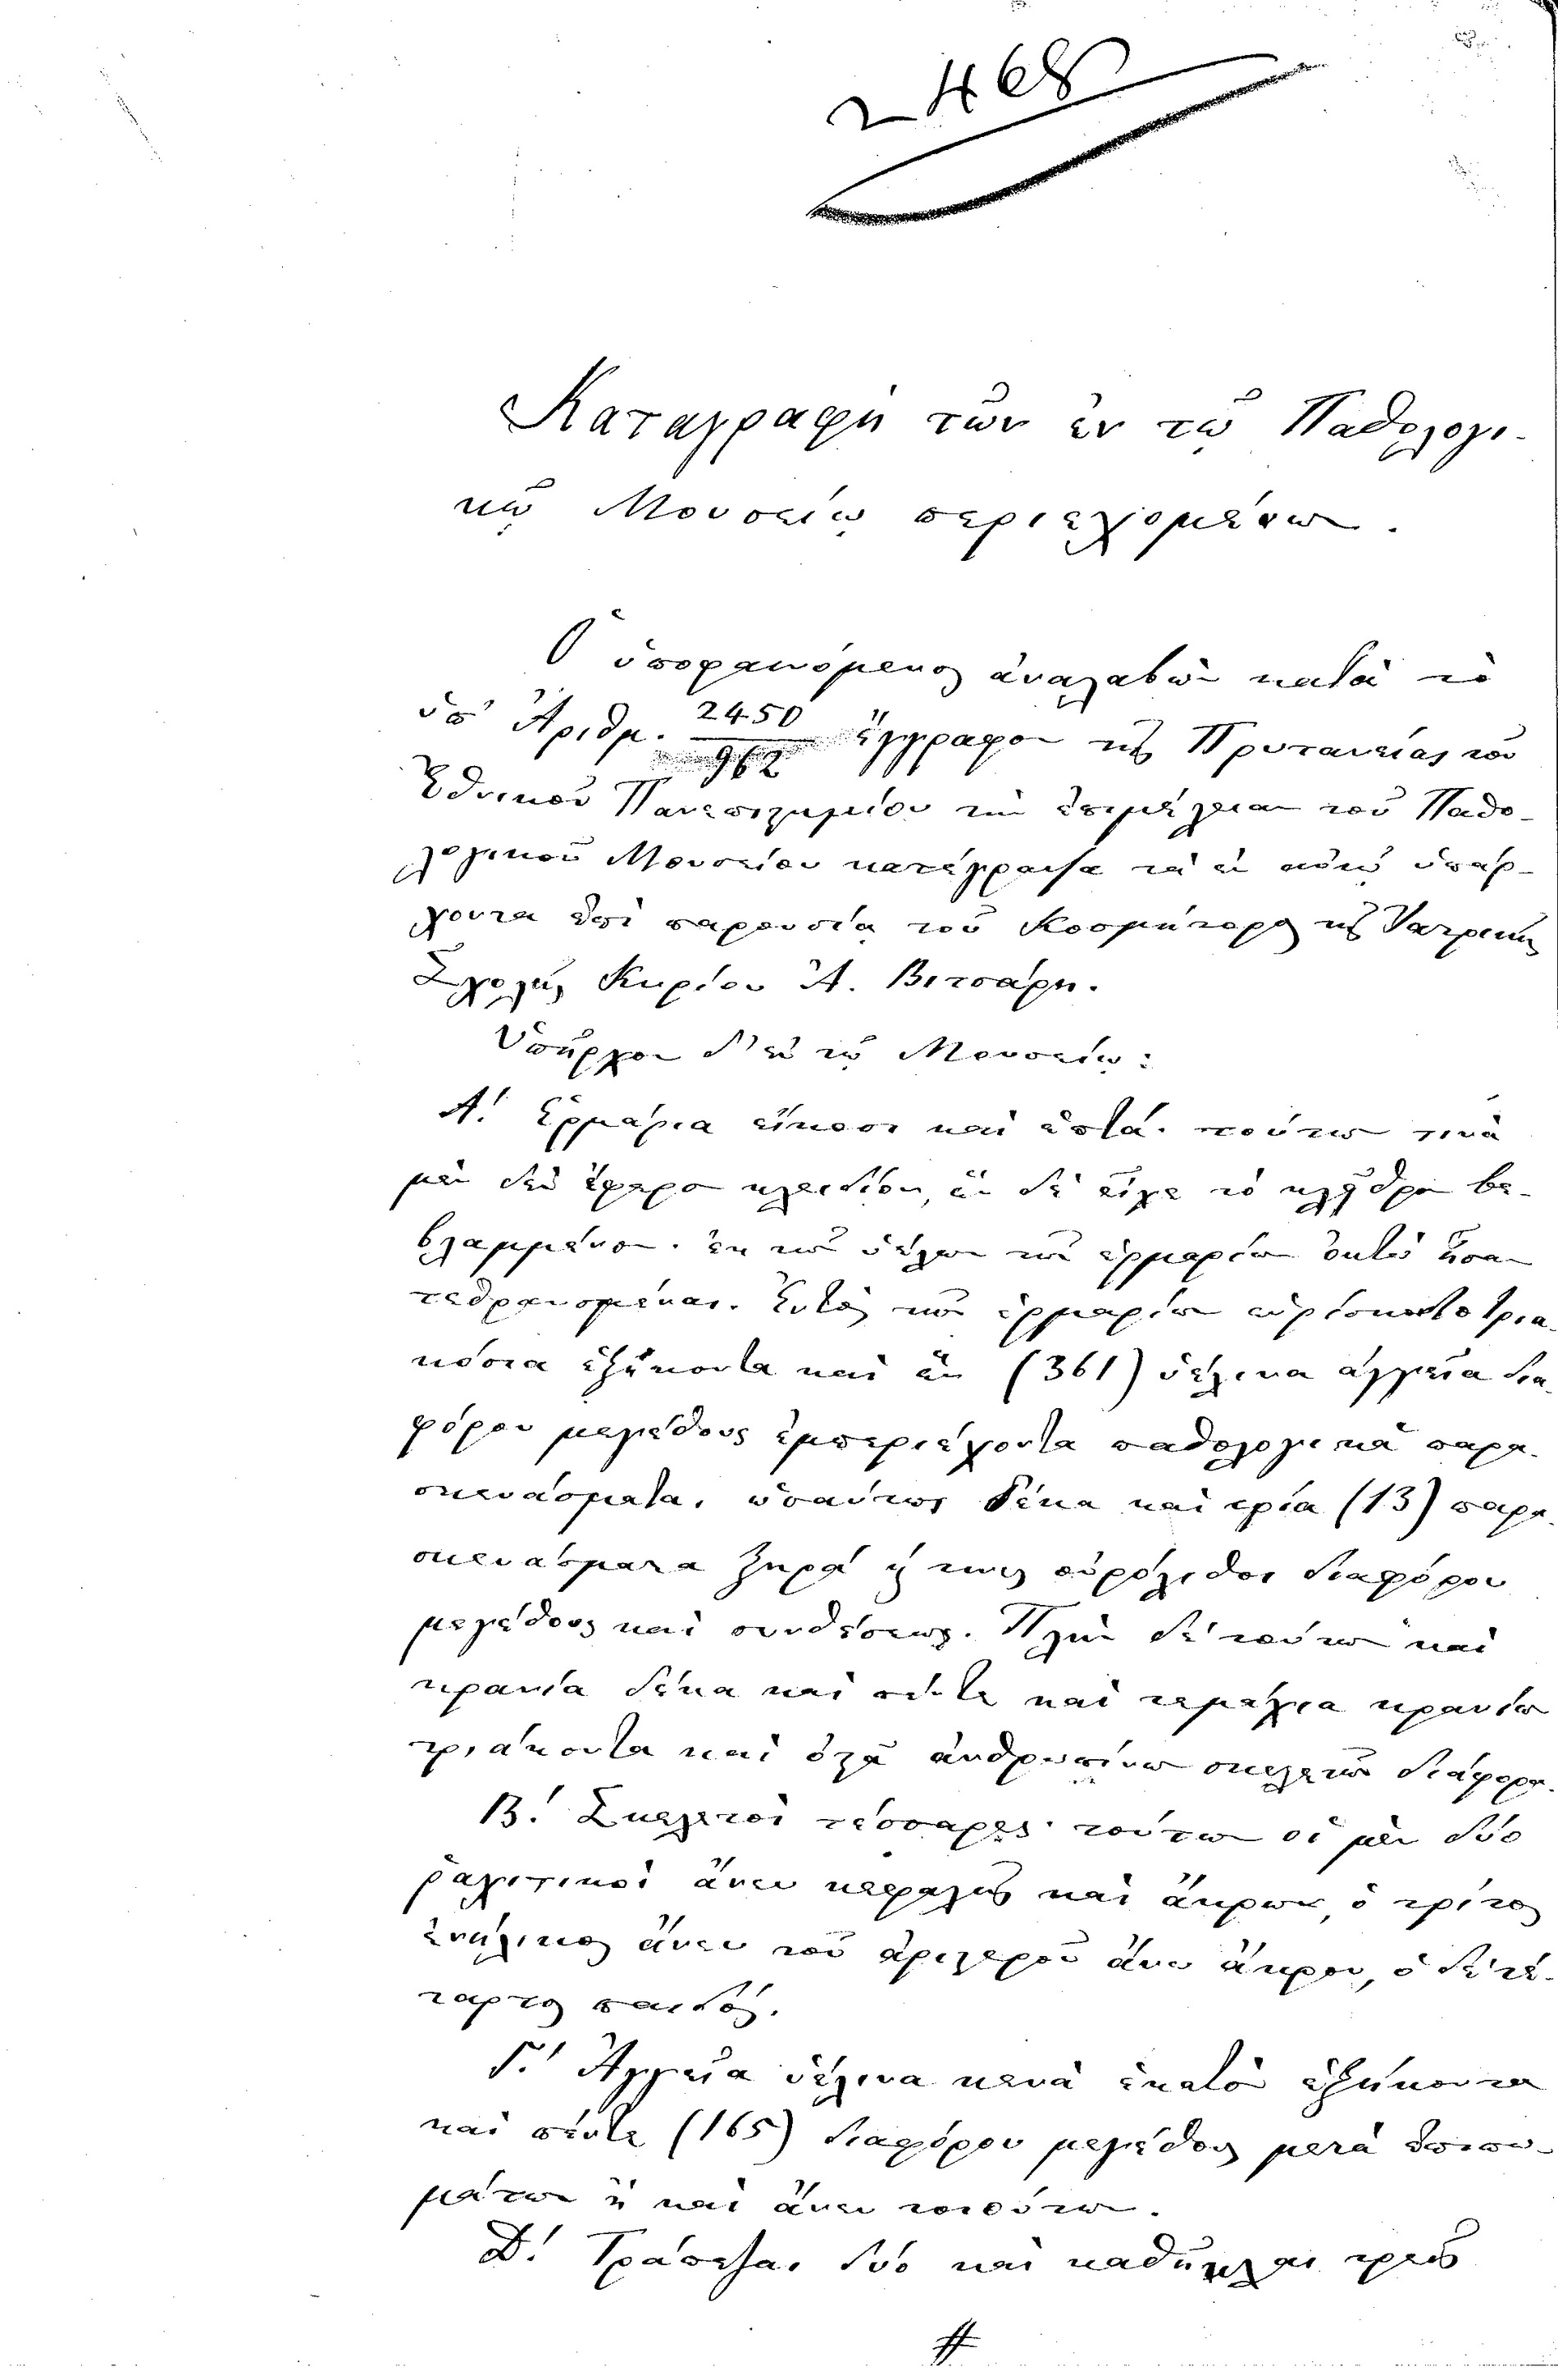 2468
Καταγραφὴ τῶν ἐν τῷ Παθολογι-
κῷ Μουσείῳ περιεχομένων.
Ὁ ὑποφαινόμενος ἀναλαβὼν κατὰ τὸ
ὑπ' Ἀριθμ. 2450/962 ἔγγραφον τῆς Πρυτανείας τοῦ
Ἐθνικοῦ Πανεπιστημίου τὴν ἐπιμέλειαν τοῦ Παθο-
λογικοῦ Μουσείου κατέγραψα τὰ ἐν αὐτῷ ὑπάρ-
χοντα ἐπὶ παρουσίᾳ τοῦ Κοσμήτορος τῆς Ἰατρικῆς
Σχολῆς Κυρίου Ἀ. Βιτσάρη.
Ὑπῆρχον δ' ἐν τῷ Μουσείῳ:
Α! Ἑρμάρια εἴκοσι καὶ ἑπτά. τούτων τινὰ
μὲν δὲν ἔφερον κλειδίον, ἓν δὲ εἶχε τὸ κλεῖθρον βε-
βλαμμένον. ἐκ τῶν ὑέλων τῶν ἑρμαρίων ὀκτὼ ἦσαν
τεθραυσμέναι. Ἐντὸς τῶν ἑρμαρίων εὑρίσκοντο τρια-
κόσια ἑξήκοντα καὶ ἓν (361) ὑέλινα ἀγγεῖα δια-
φόρου μεγέθους ἐμπεριέχοντα παθολογικὰ παρα-
σκευάσματα, ὡσαύτως δέκα καὶ τρία (13) παρα-
σκευάσματα ξηρὰ ἤ τινες οὐρόλιθοι διαφόρου
μεγέθους καὶ συνθέσεως. Πλὴν δὲ τούτων καὶ
κρανία δέκα καὶ πέντε καὶ τεμάχια κρανίων
τριάκοντα καὶ ὀστᾶ ἀνθρωπίνων σκελετῶν διάφορα.
Β! Σκελετοὶ τέσσαρες· τούτων οἱ μὲν δύο
ῥαχιτικοὶ ἄνευ κεφαλῆς καὶ ἄκρων, ὁ τρίτος
ἐνήλικος ἄνευ τοῦ ἀριστεροῦ ἄνω ἄκρου, ὁ δὲ τέ-
ταρτος παιδός.
Γ! Ἀγγεῖα ὑέλινα κενὰ ἑκατὸν ἑξήκοντα
καὶ πέντε (165) διαφόρου μεγέθους μετὰ ἐπιπω-
μάτων ἢ καὶ ἄνευ τοιούτων.
Δ! Τράπεζαι δύο καὶ καθῆκλαι τρεῖς